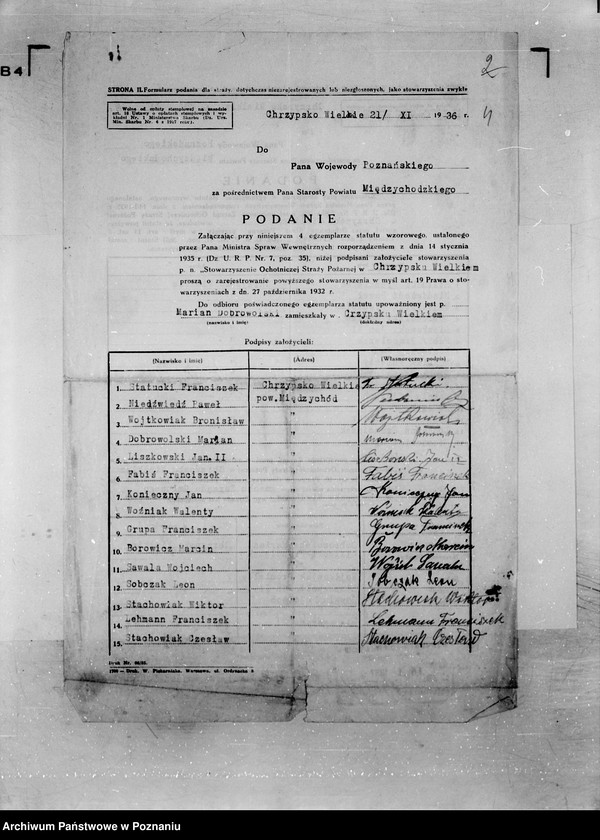 2
B4
STRONA II. Formularz podania dla straży, dotychczas niezarejestrowanych lub niezgłoszonych, jako stowarzyszenia zwykłe
Wolne od opłaty stemplowej na zasadzie
art. Ustawy o opłatach stemplowych i wy-
Min. Skarbu Nr.
Chrzypsko Wielkie 21/ XI 1936 r.
4
Do
Pana Wojewody Poznańskiego
za pośrednictwem Pana Starosty Powiatu Międzychodzkiego
PODANIE
Załączając przy niniejszem 4 egzemplarze statutu wzorowego, ustalonego
przez Pana Ministra Spraw Wewnętrznych rozporządzeniem z dnia 14 stycznia
1935 r. (Dz. U. R. P. Nr. 7, poz. 35), niżej podpisani założyciele stowarzyszenia
p. n. „Stowarzyszenie Ochotniczej Straży Pożarnej w Chrzypsku Wielkiem
proszą o zarejestrowanie powyższego stowarzyszenia w myśl art. 19 Prawa o sto-
warzyszeniach z dn. 27 października 1932 r.
Do odbioru poświadczonego egzemplarza statutu upoważniony jest p.
Marian Dobrowolski zamieszkały w Crzypsku Wielkiem
(nazwisko i imię) (dokładny adres)
Podpisy założycieli:
(Nazwisko i imię) (Adres) (Własnoręczny podpis)
1. Statucki Franciszek Chrzypsko Wielkie
2. Niedźwiedź Paweł pow. Międzychód
3. Wojtkowiak Bronisław " Wojtkowiak
4. Dobrowolski Marian "
5. Liszkowski Jan. II "
6. Fabiś Franciszek " Fabiś Franciszek
7. Konieczny Jan " Konieczny Jan
8. Woźniak Walenty "
9. Grupa Franciszek " Grupa Franciszek
10. Borowicz Marcin "
11. Sawala Wojciech "
12. Sobczak Leon " Sobczak Leon
13. Stachowiak Wiktor " Stachowiak Wiktor
14. Lehmann Franciszek " Lehmann Franciszek
15. Stachowiak Czesław " Stachowiak Czesław
Druk Nr.
Druk. W. Piekarniaka, Warszawa, ul. Ordynacka 3
Archiwum Państwowe w Poznaniu